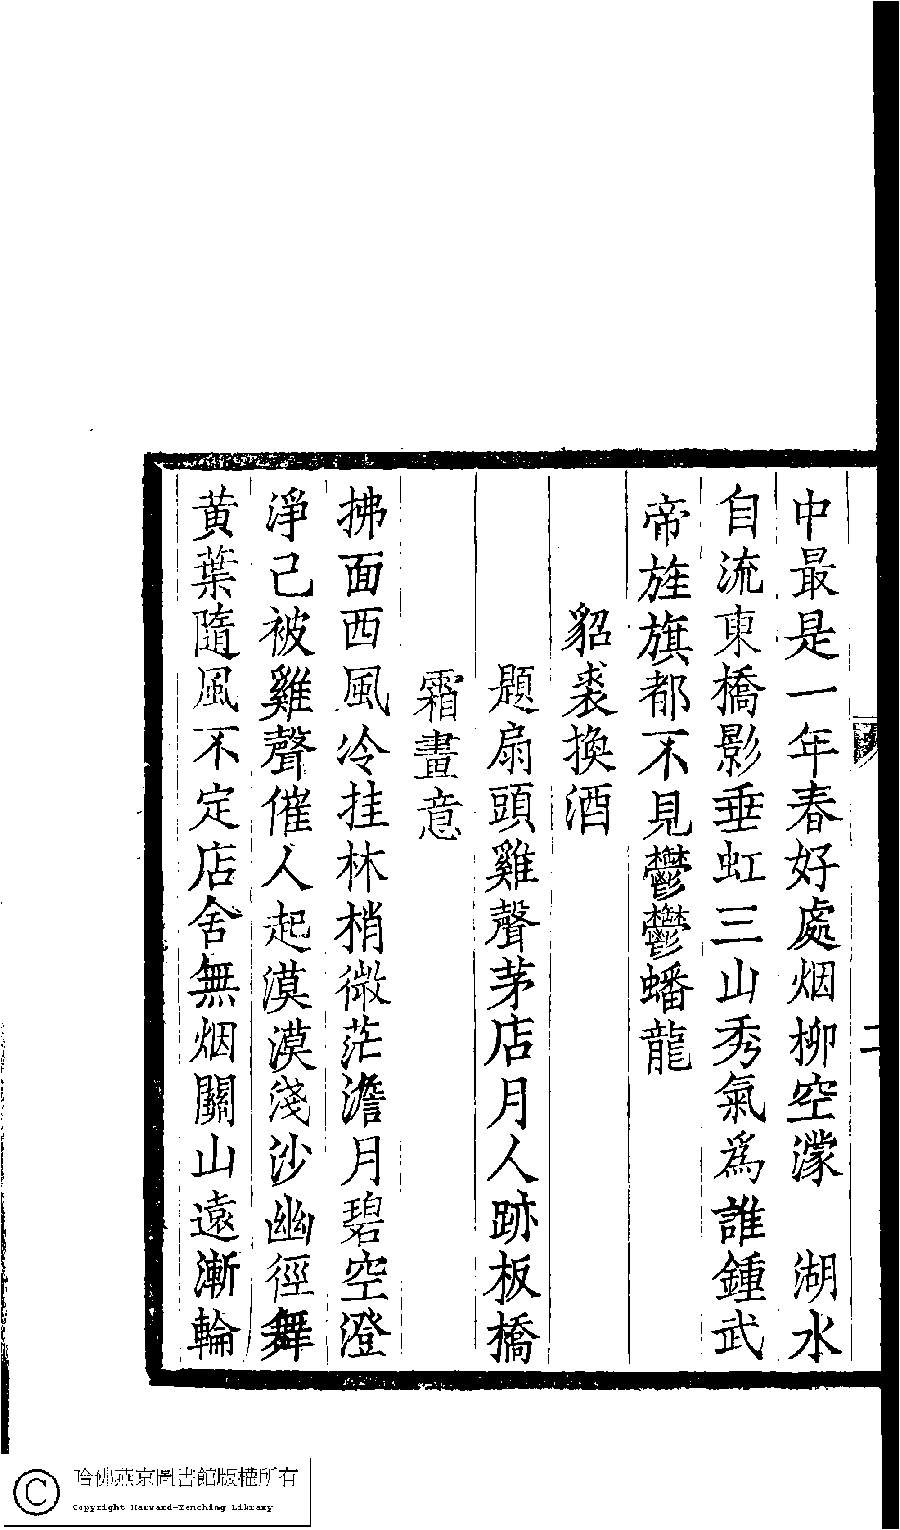 中最是一年春好處烟柳空濛　湖水
自流東橋影垂虹三山秀氣爲誰鍾武
帝旌旗都不見鬱鬱蟠龍
貂裘換酒
題扇頭雞聲茅店月人跡板橋
霜畫意
拂面西風冷挂林梢微茫澹月碧空澄
淨已被雞聲催人起漠漠淺沙幽徑舞
黃葉隨風不定店舍無烟關山遠漸輪
二
哈佛燕京圖書館版權所有
Copyright Harvard-Yenching Library